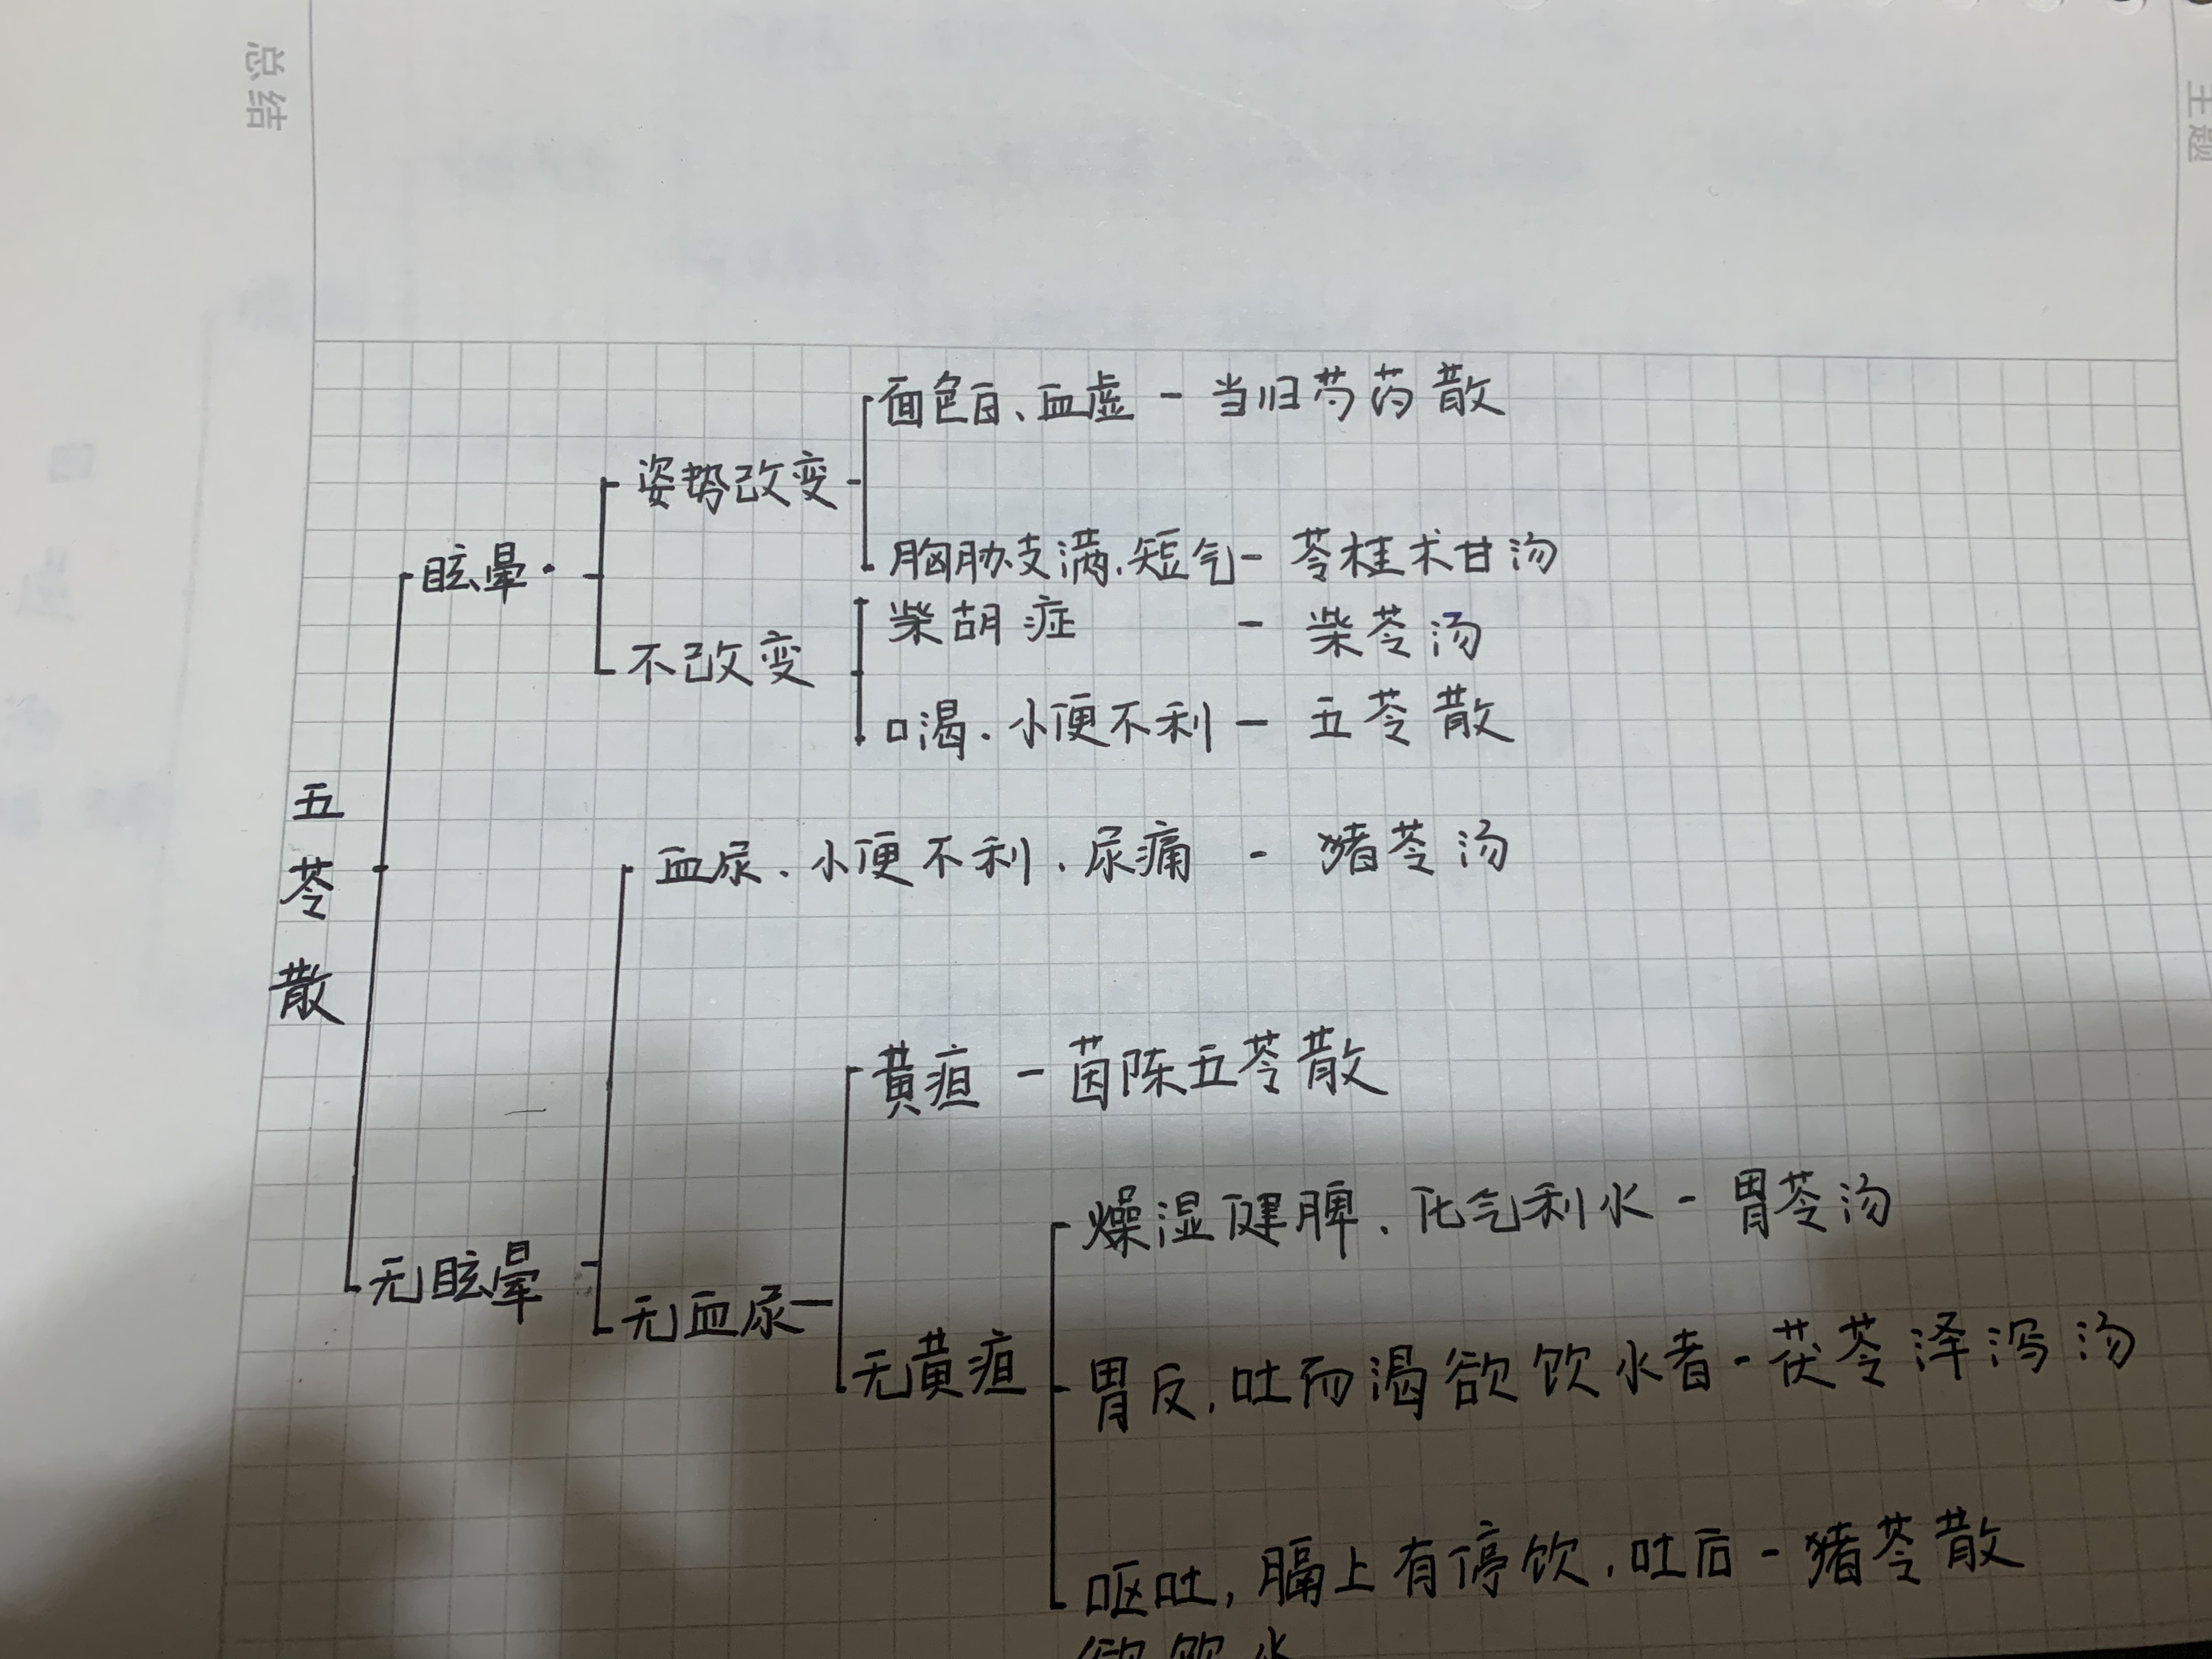 总结
主题
面色白、血虚 - 当归芍药散
姿势改变
胸胁支满.短气 - 苓桂术甘汤
眩晕.
柴胡症 - 柴苓汤
不改变
口渴.小便不利 - 五苓散
五苓散
血尿.小便不利.尿痛 - 猪苓汤
黄疸 - 茵陈五苓散
燥湿健脾.化气利水 - 胃苓汤
无眩晕
无血尿
无黄疸
胃反,吐而渴欲饮水者 - 茯苓泽泻汤
呕吐,膈上有停饮,吐后 - 猪苓散
欲饮水